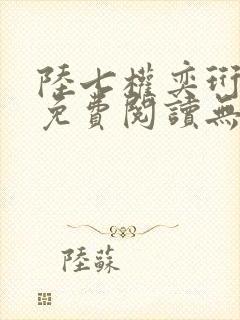 陸七權奕珩
免費閱讀無
陸蘇